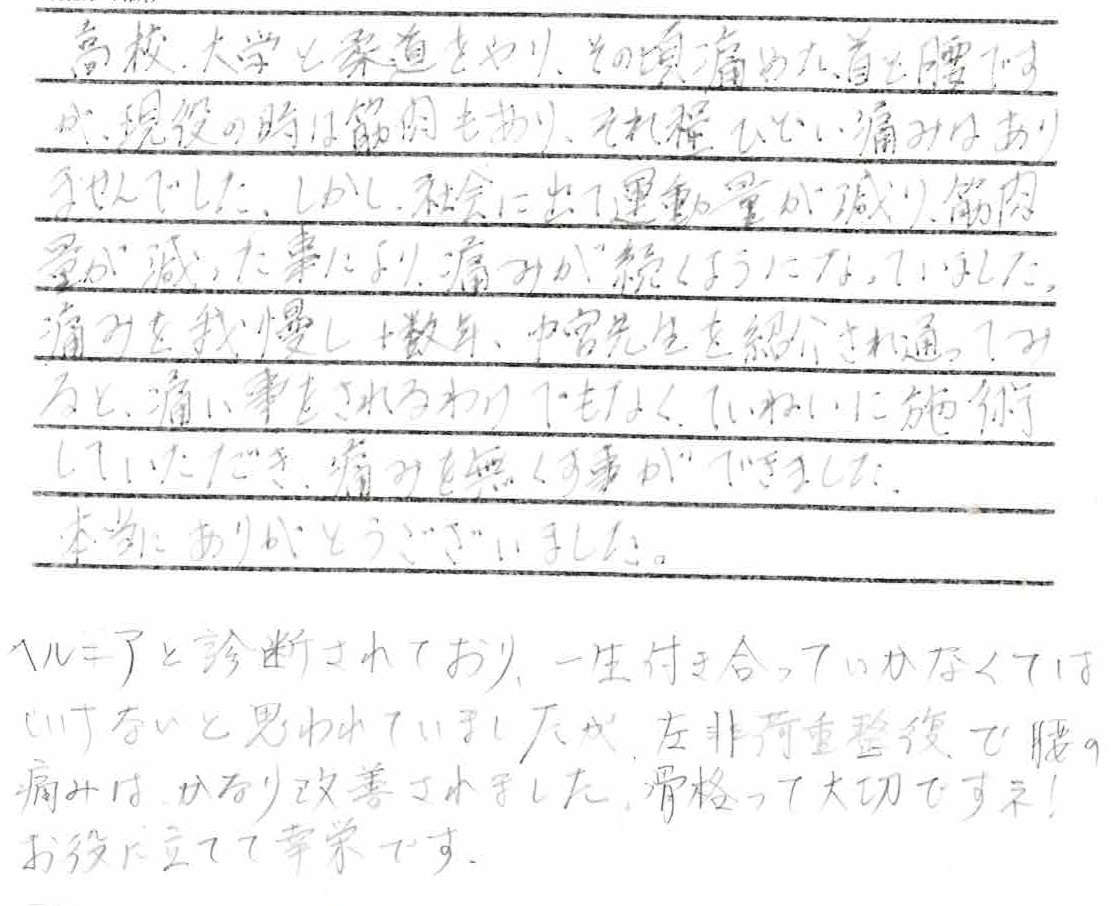 高校、大学と柔道をやり、その頃痛めた、首と腰です
が、現役の時は筋肉もあり、それ程ひどい痛みはあり
ませんでした、しかし、社会に出て運動量が減り、筋肉
量が減った事により、痛みが続くようになっていました。
痛みを我慢し十数年、中宮先生を紹介され通ってみ
ると、痛い事をされるわけでもなく、ていねいに施術
していただき、痛みを無くす事ができました、
本当にありがとうございました。
ヘルニアと診断されており、一生付き合っていかなくては
いけないと思われていましたが、左非荷重整復で腰の
痛みは、かなり改善されました、骨格って大切ですネ！
お役に立てて幸栄です、